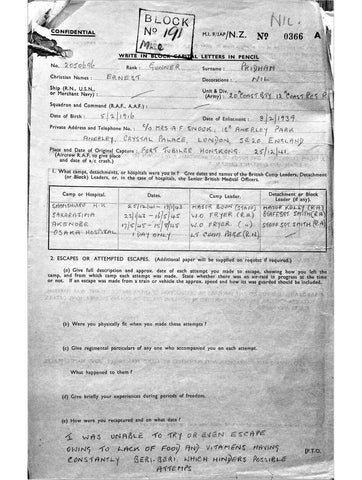 NIL.
BLOCK
No 191
CONFIDENTIAL
M.I. 9/JAP/N.Z. No 0366 A
WRITE IN BLOCK CAPITAL LETTERS IN PENCIL
No. 2050696 Rank: GUNNER Surname: PRIDHAM
Christian Names: ERNEST Decorations: NIL
Ship (R.N., U.S.N. or Merchant Navy): Unit & Div. (Army): 20th COAST BTY 12th COAST RGT R
Squadron and Command (R.A.F., A.A.F.):
Date of Birth: 5/2/1916 Date of Enlistment: 8/2/1939.
Private Address and Telephone No.: C/O MRS A.F. SNOOK, 18A ANERLEY PARK
ANERLEY, CRYSTAL PALACE, LONDON, SE20, ENGLAND
Place and Date of Original Capture: FORT JUBILEE HONGKONG 25/12/41.
(Aircrew R.A.F. to give place
and date of a/c crash.)
1. What camps, detachments, or hospitals were you in? Give dates and names of the British Camp Leaders, Detachment
(or Block) Leaders, or, in the case of hospitals, the Senior British Medical Officers.
Camp or Hospital. Dates. Camp Leader. Detachment or Block Leader (if any).
SHAMSHUIPO H.K. MAJOR
W.O. FRYER (R.N)
AKENOBE 17/5/45 - W.O. FRYER STAFF SGT SMITH (R.A)
OSAKA HOSPITAL 1 DAY ONLY (R.N)
2. ESCAPES OR ATTEMPTED ESCAPES. (Additional paper will be supplied on request if required.)
(a) Give full description and approx. date of each attempt you made to escape, showing how you left the camp,
and from which camp each attempt was made. State whether there was an air-raid in progress at the time
or not. If an escape was made from a train or vehicle the approx. speed and how its was guarded should be included.
(b) Were you physically fit when you made these attempts?
(c) Give regimental particulars of any one who accompanied you on each attempt.
What happened to them?
(d) Give briefly your experiences during periods of freedom.
(e) How were you recaptured and on what date?
I WAS UNABLE TO TRY OR EVEN ESCAPE
OWING TO LACK OF FOOD AND VITAMENS HAVING
CONSTANTLY BERI-BERI, WHICH HINDERS POSSIBLE
ATTEMPS
[P.T.O.